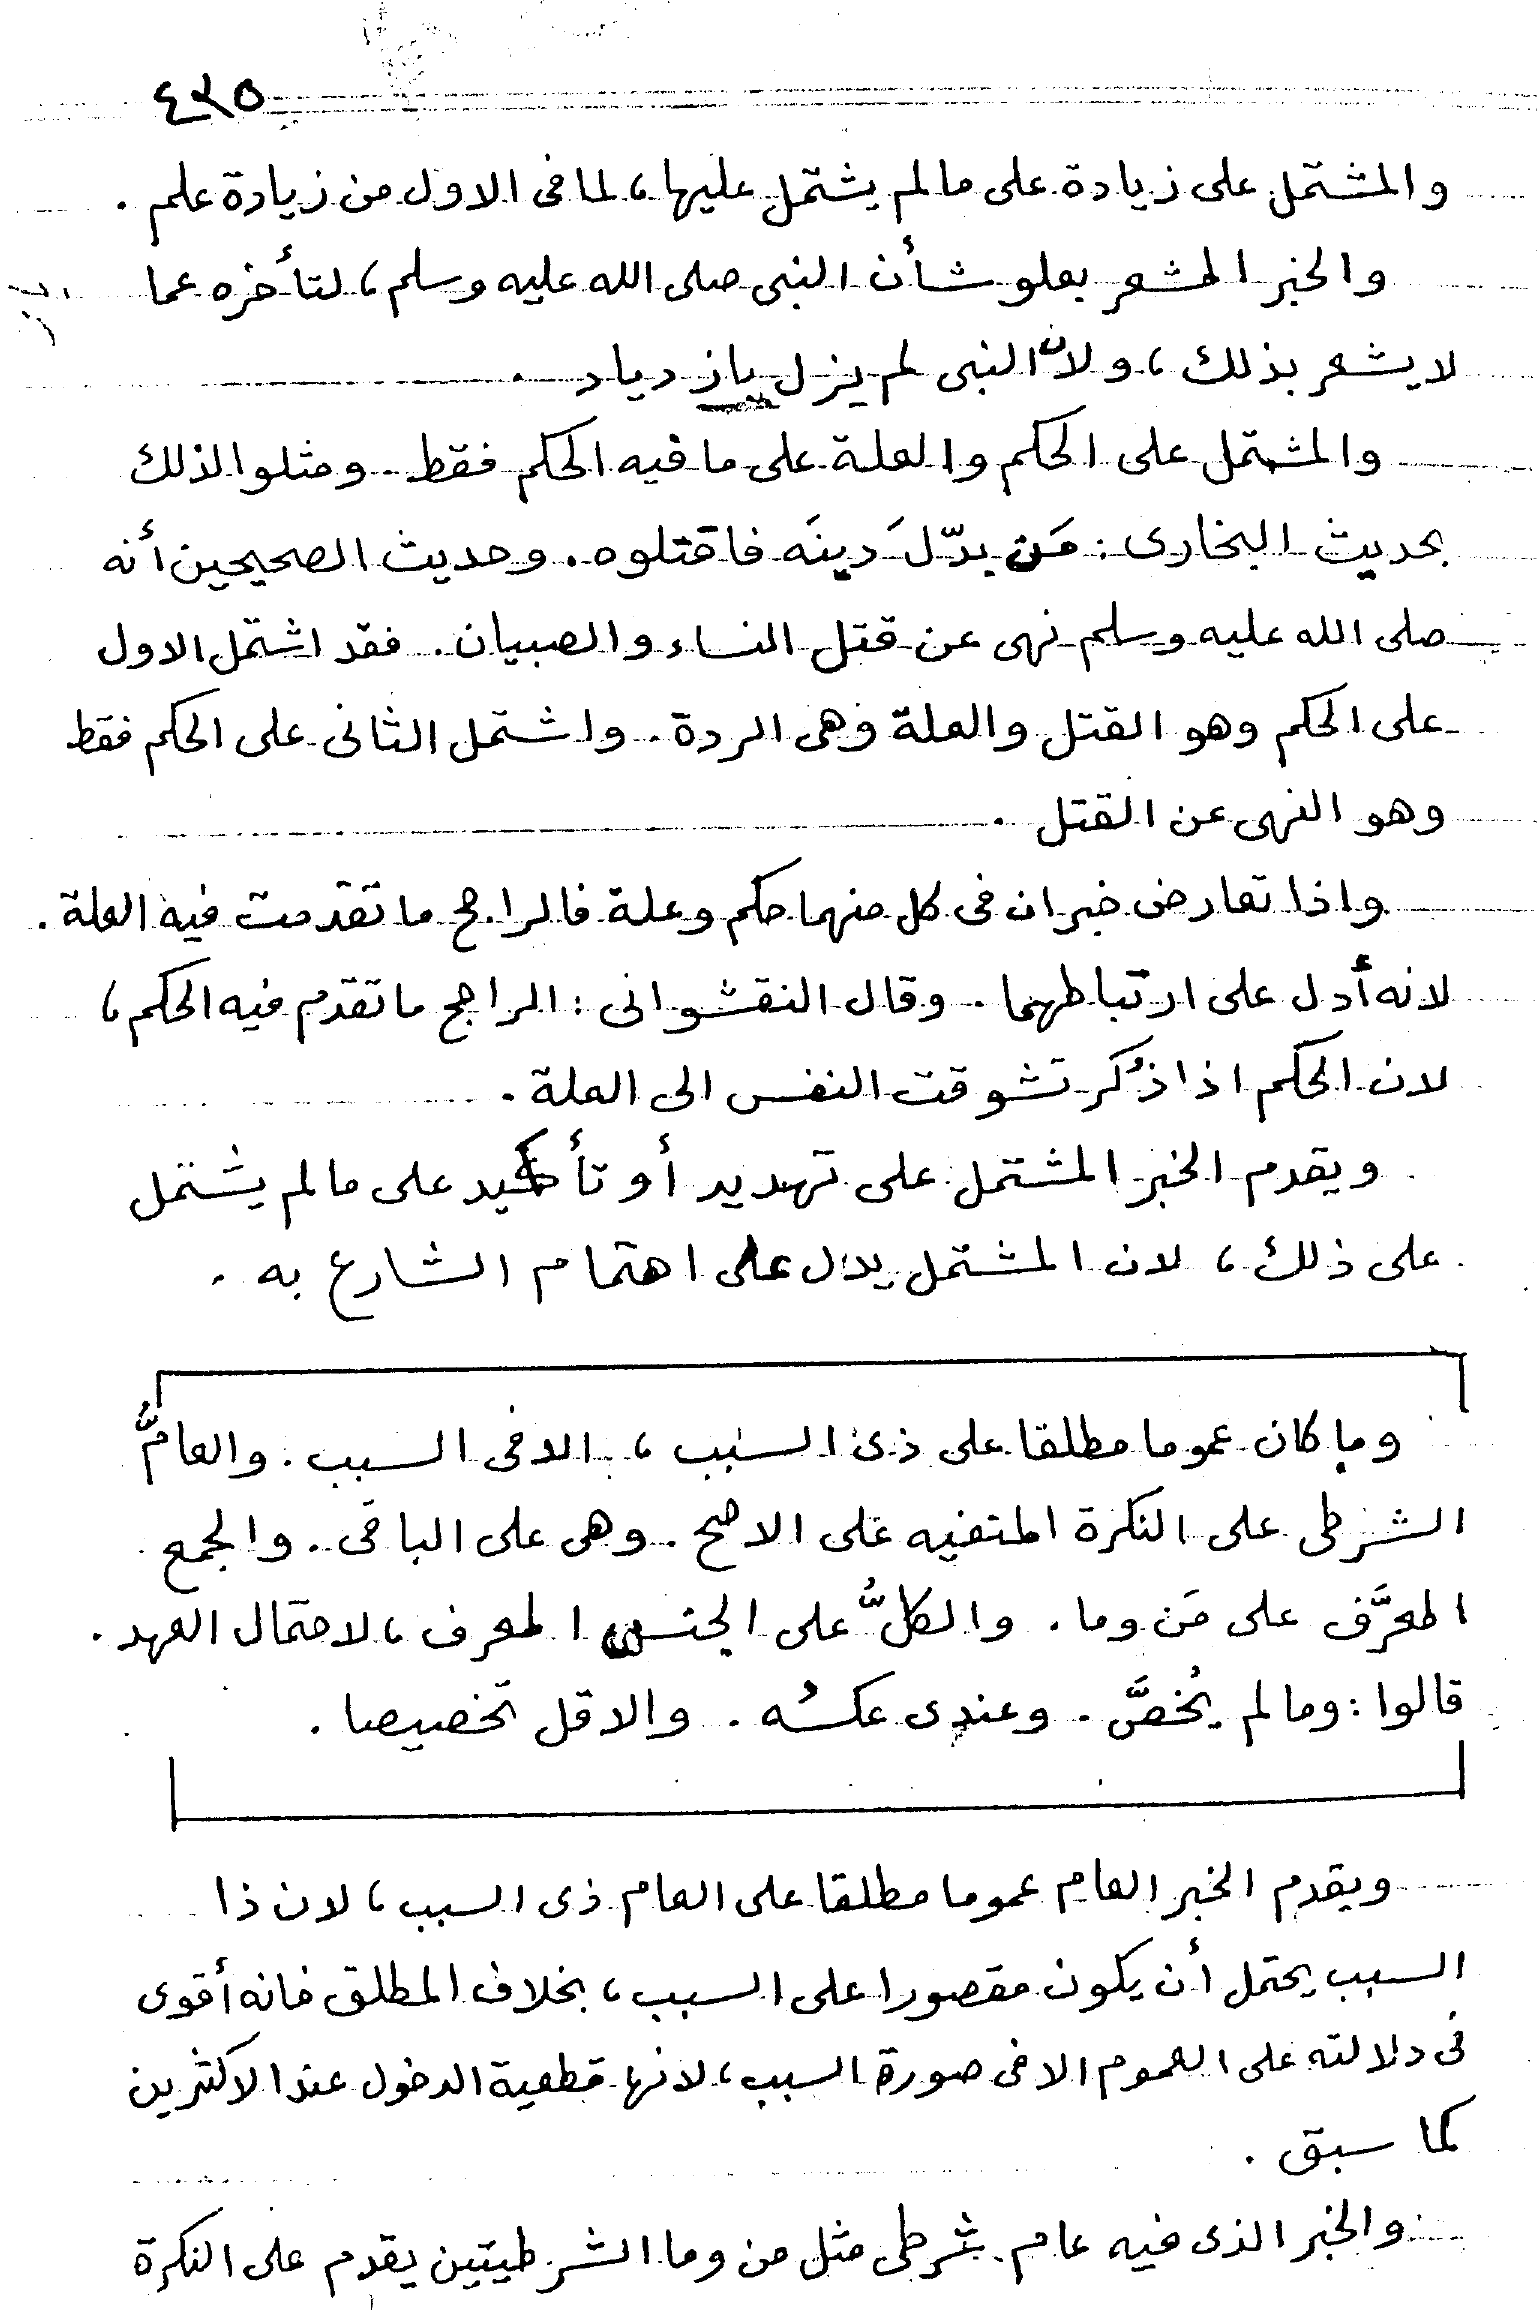 ٤٢٥
والمشتمل على زيادة على ما لم يشتمل عليها، لما فى الاول من زيادة علم .
والخبر المشعر بعلو شأن النبى صلى الله عليه وسلم، لتأخره عما
لا يشعر بذلك، ولان النبى لم يزل بازدياد .
والمشتمل على الحكم والعلة على ما فيه الحكم فقط . ومثلوا لذلك
بحديث البخارى : مَن بدّلَ دينَه فاقتلوه . وحديث الصحيحين أنه
صلى الله عليه وسلم نهى عن قتل النساء والصبيان . فقد اشتمل الاول
على الحكم وهو القتل والعلة وهى الردة . واشتمل الثانى على الحكم فقط
وهو النهى عن القتل .
واذا تعارض خبران فى كل منهما حكم وعلة فالراجح ما تقدمت فيه العلة .
لانه أدل على ارتباطهما . وقال النقشوانى : الراجح ما تقدم فيه الحكم،
لان الحكم اذا ذُكر تشوقت النفس الى العلة .
ويقدم الخبر المشتمل على تهديد أو تأكيد على ما لم يشتمل
على ذلك، لان المشتمل يدل على اهتمام الشارع به .
وما كان عموما مطلقا على ذى السبب، الا فى السبب . والعامُّ
الشرطى على النكرة المنفيه على الاصح . وهى على الباقى . والجمع
المعرَّف على مَن وما . والكلُّ على الجنس المعرف، لاحتمال العهد .
قالوا : وما لم يُخصَّ . وعندى عكسُه . والاقل تخصيصا .
ويقدم الخبر العام عموما مطلقا على العام ذى السبب، لان ذا
السبب يحتمل أن يكون مقصورا على السبب، بخلاف المطلق فانه أقوى
فى دلالته على العموم الا فى صورة السبب، لانها قطعية الدخول عند الاكثرين
كما سبق .
والخبر الذى فيه عام شرطى مثل من وما الشرطيتين يقدم على النكرة